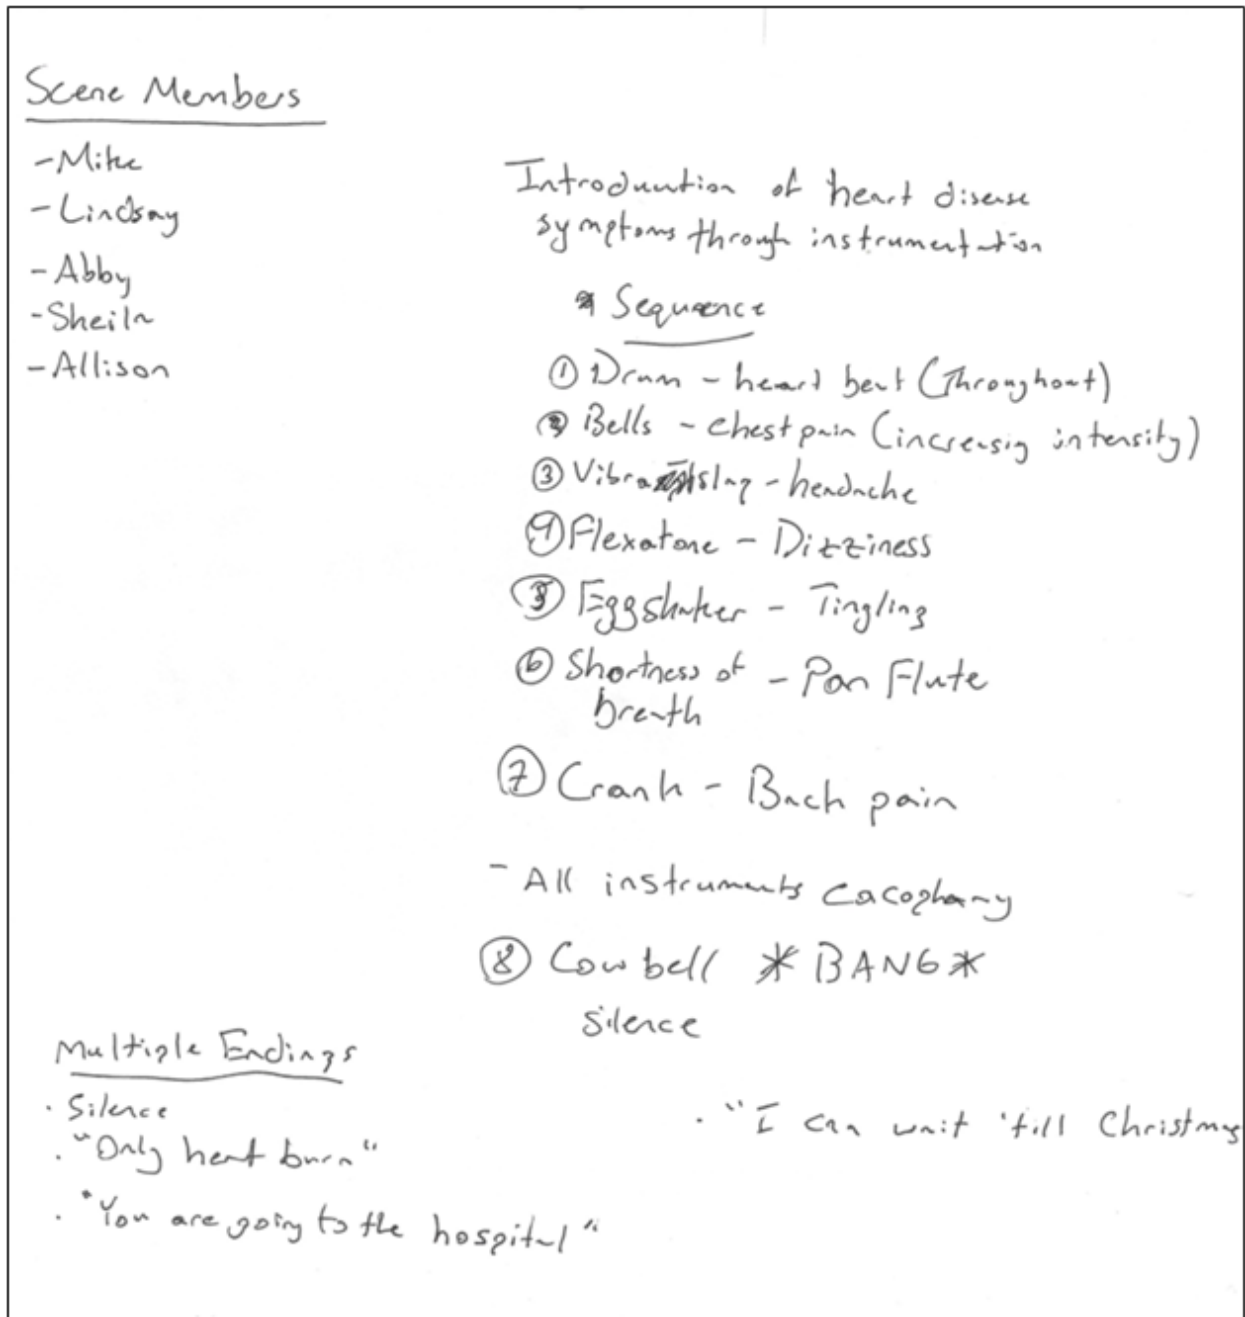 Scene Members
-Mike
-Lindsay
-Abby
-Sheila
-Allison
Introduction of heart disease
symptoms through instrumentation
Sequence
① Drum - heart beat (Throughout)
② Bells - chest pain (increasig intensity)
③ Vibraslap - headache
④ Flexatone - Dizziness
⑤ Eggshaker - Tingling
⑥ Shortness of - Pan Flute
breath
⑦ Crank - Back pain
- All instruments cacophany
⑧ Cowbell *BANG*
silence
Multiple Endings
· Silence
· "Only heart burn"
· "You are going to the hospital"
· "I can wait 'till Christmas